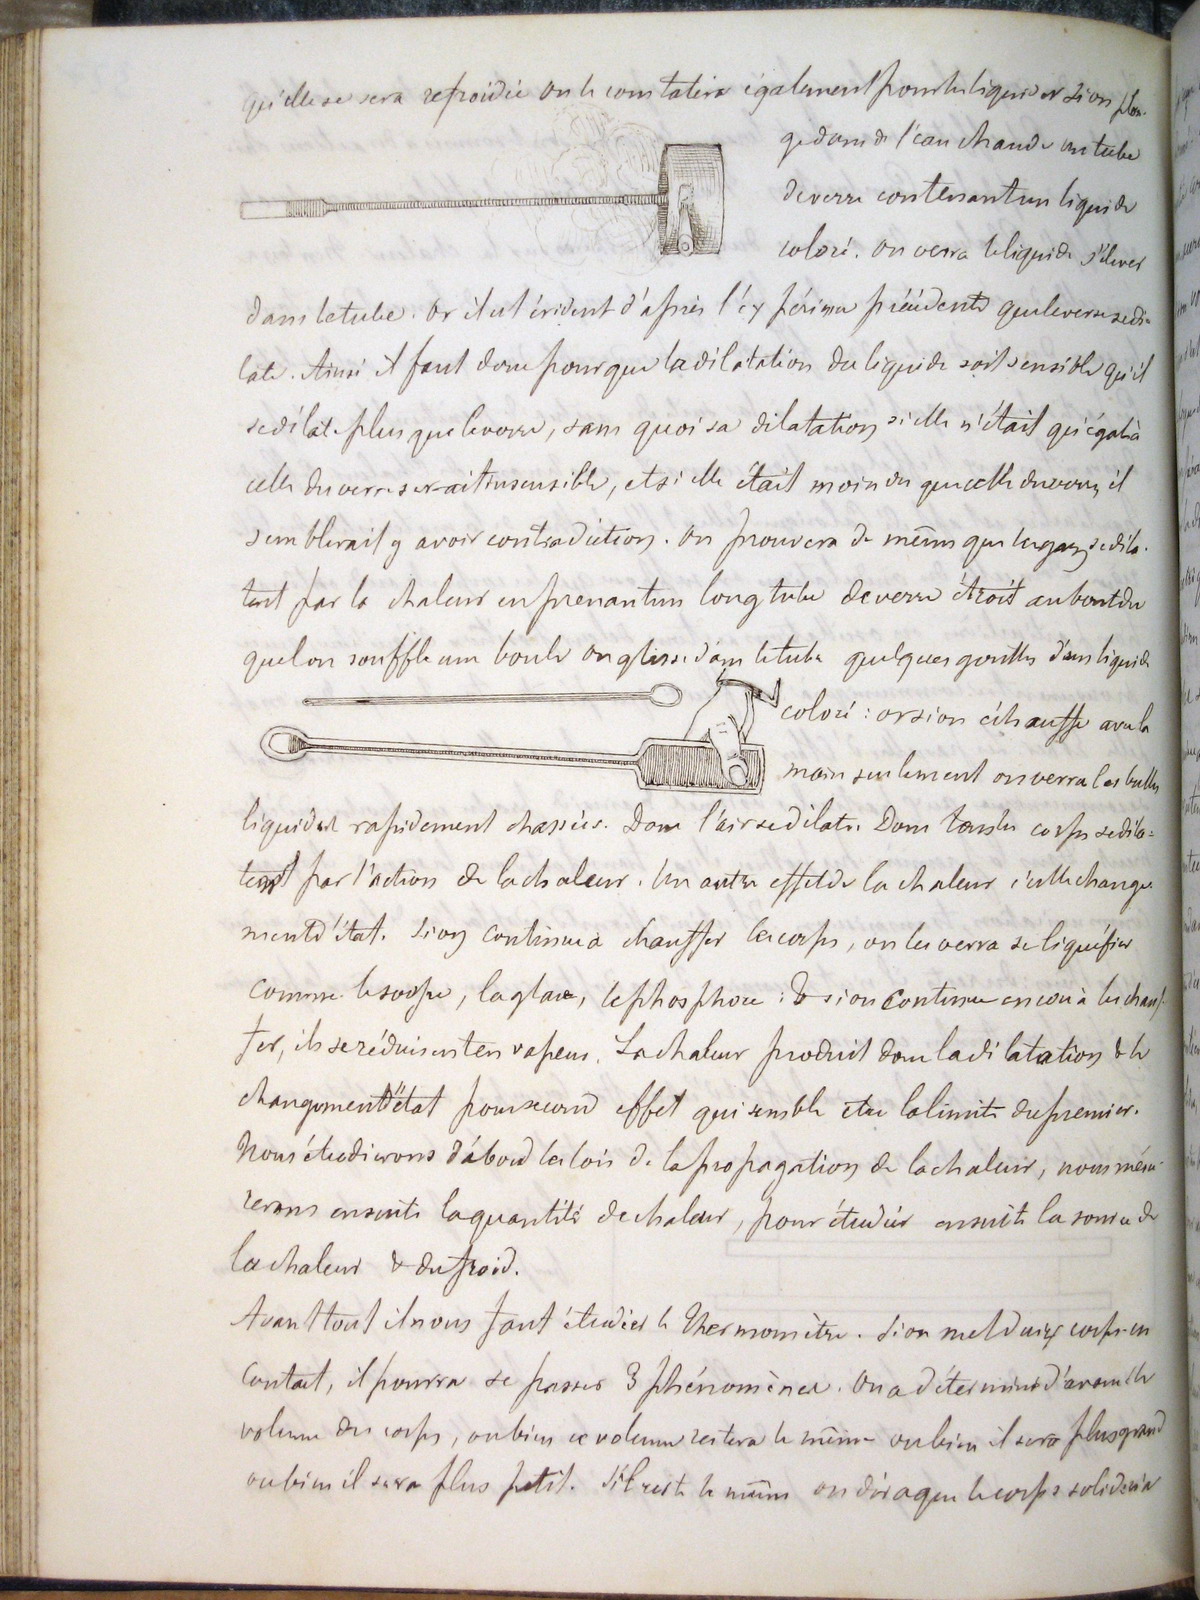 qu'elle se sera refroidie on le constatera également pour les liquides si on plon-
ge dans de l'eau chaude un tube
de verre contenant un liquide
coloré. On verra le liquide s'élever
dans le tube. Or il est évident d'après l'expérience précédente que le verre se di-
late. Ainsi il faut donc pour que la dilatation du liquide soit sensible qu'il
se dilate plus que le verre, sans quoi sa dilatation si elle n'était qu'égale à
celle du verre serait insensible, et si elle était moindre que celle du verre, il
semblerait y avoir contradiction. On prouvera de même que les gaz se dila-
tent par la chaleur en prenant un long tube de verre étroit au bout du
quel on souffle une boule on glisse dans le tube quelques gouttes d'un liquide
coloré : or si on échauffe avec la
main seulement on verra les bulles
liquides rapidement chassées. Donc l'air se dilate. Donc tous les corps se dila=
tent par l'action de la chaleur. Un autre effet de la chaleur c'est le change
ment d'état. Si on continue à chauffer les corps, on les verra se liquéfier
comme le soufre, la glace, le phosphore : & si on continue encore à les chauf-
fer, ils se réduisent en vapeur. La chaleur produit donc la dilatation & le
changement d'état pour second effet qui semble être la limite du premier.
Nous étudierons d'abord les lois de la propagation de la chaleur, nous mésu-
rerons ensuite la quantité de chaleur, pour étudier ensuite la source de
la chaleur & du froid.
Avant tout il nous faut étudier le Thermomètre. Si on met deux corps en
contact, il pourra se passer 3 phénomènes. On a déterminé d'avance le
volume des corps, ou bien ce volume restera le même ou bien il sera plus grand
ou bien il sera plus petit. S'il reste le même on dira que le corps solide à